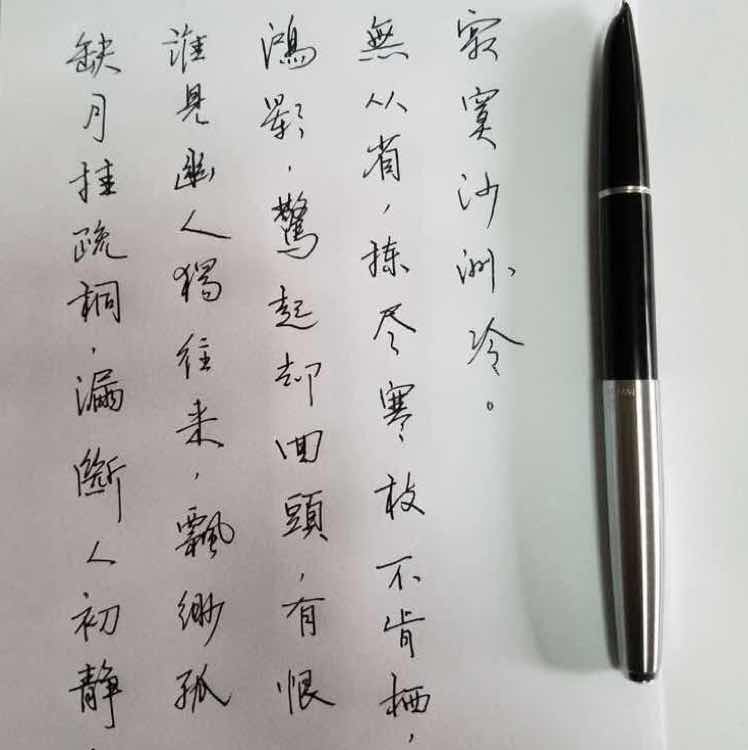 缺月挂疏桐，漏斷人初靜，
誰見幽人獨往来，飄緲孤
鴻影，驚起却回頭，有恨
無从省，拣尽寒枝不肯栖，
寂寞沙洲冷。